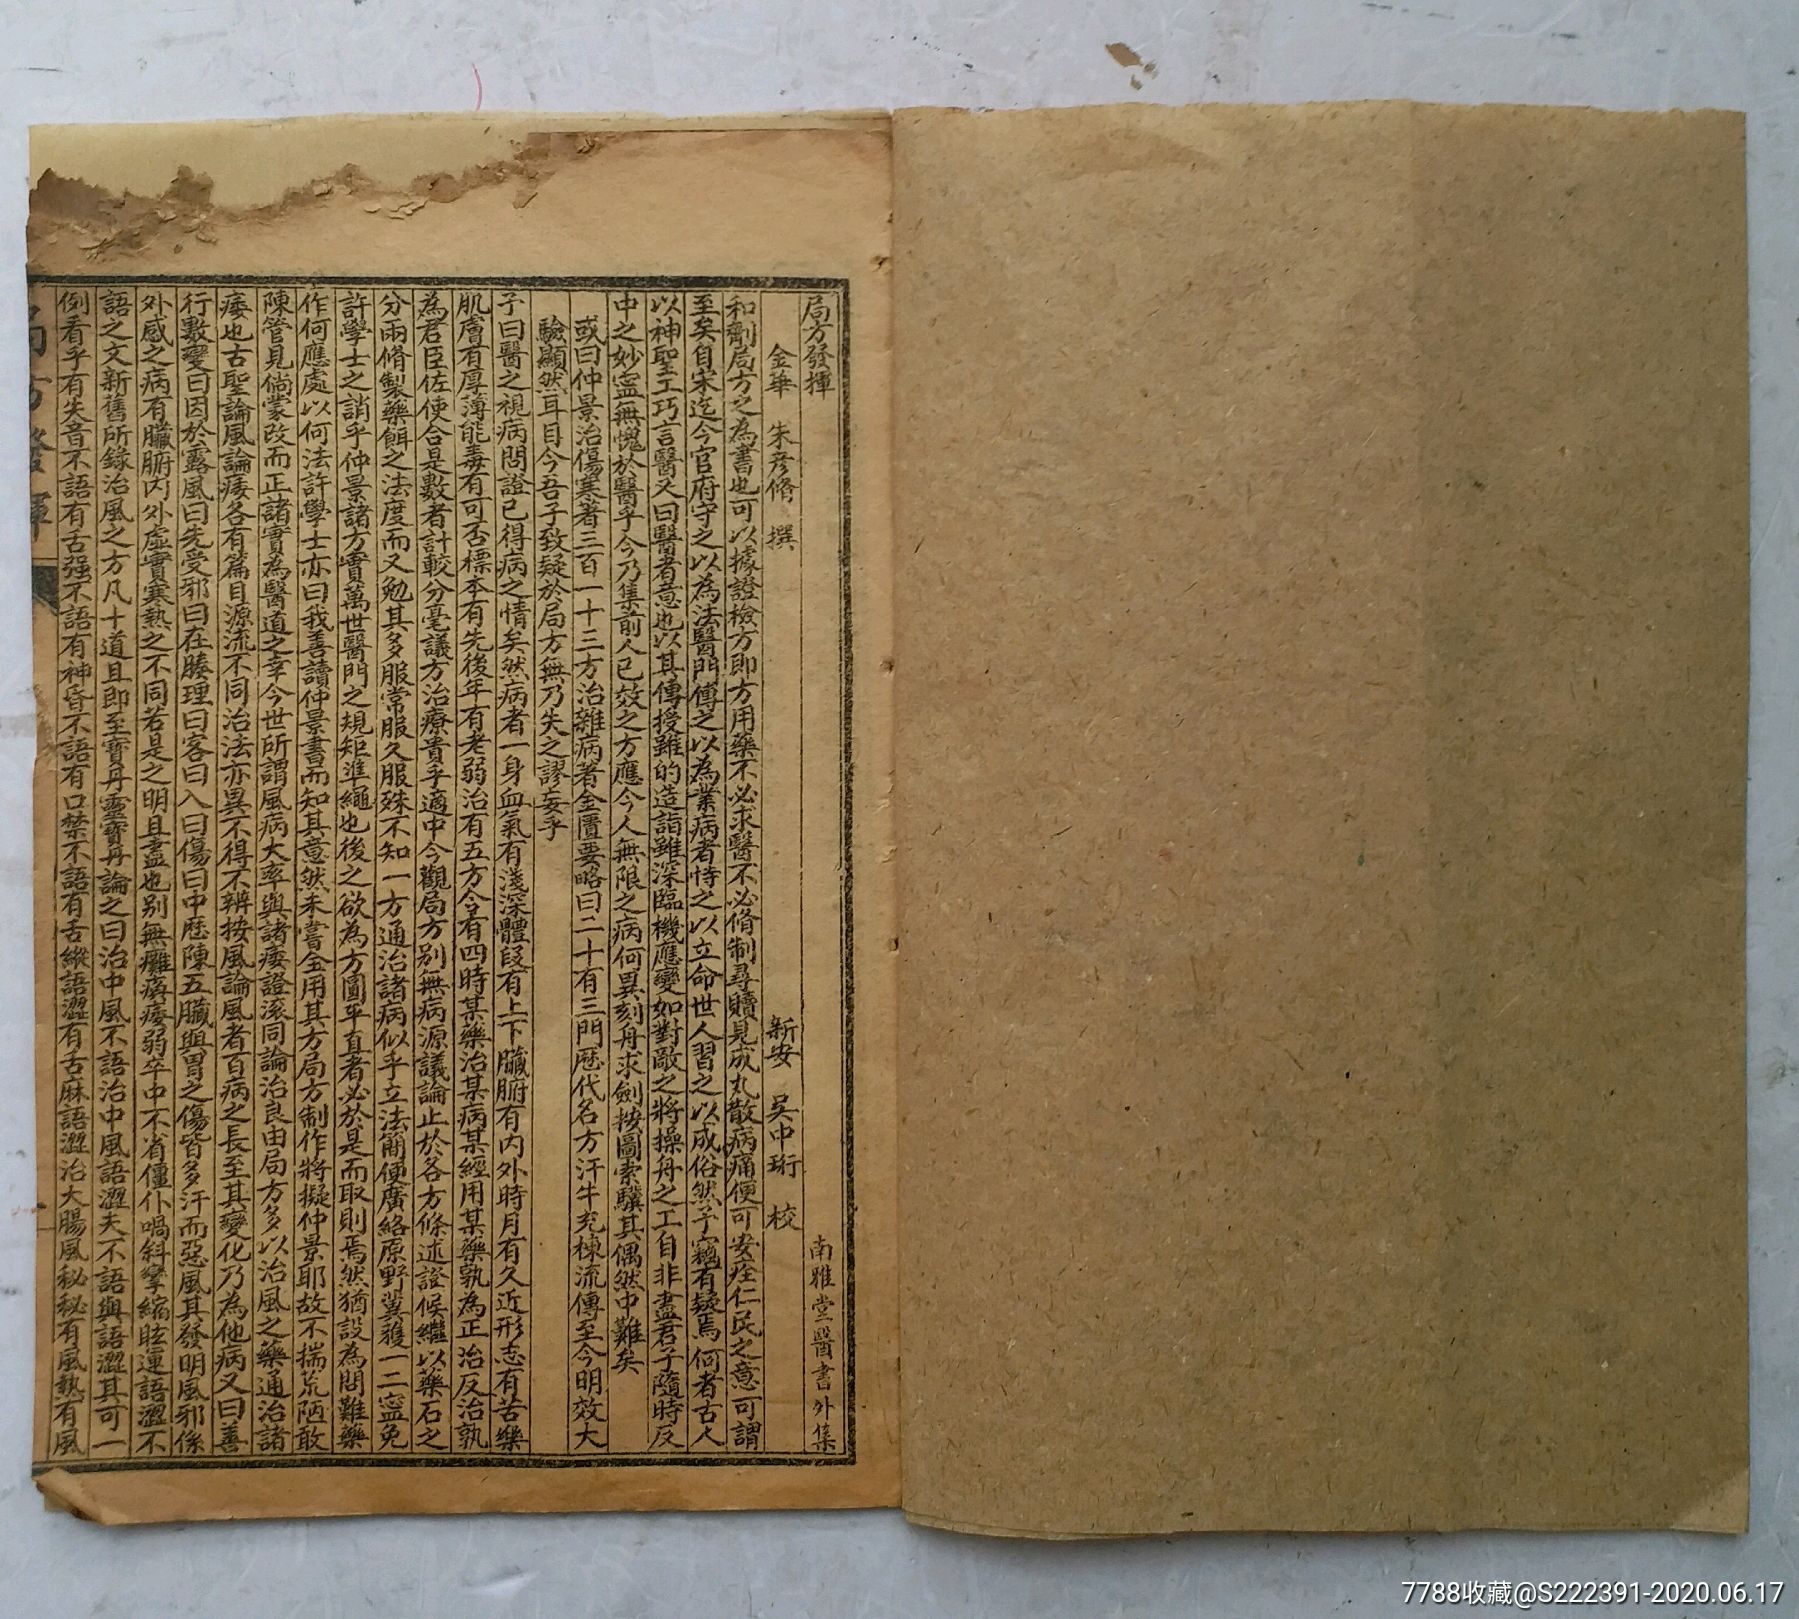 局方發揮
南雅堂醫書外集
金華 朱彦脩 撰
新安 吳中珩 校
和劑局方之為書也可以據證檢方即方用藥不必求醫不必脩制尋贖見成丸散病痛便可安痊仁民之意可謂
至矣自宋迄今官府守之以為法醫門傳之以為業病者恃之以立命世人習之以成俗然予竊有疑焉何者古人
以神聖工巧言醫又曰醫者意也以其傳授雖的造詣雖深臨機應變如對敵之將操舟之工自非盡君子隨時反
中之妙寧無愧於醫乎今乃集前人已效之方應今人無限之病何異刻舟求劍按圖索驥其偶然中難矣
或曰仲景治傷寒著三百一十三方治雜病著金匱要略曰二十有三門歷代名方汗牛充棟流傳至今明效大
驗顯然耳目今吾子致疑於局方無乃失之謬妄乎
予曰醫之視病問證已得病之情矣然病者一身血氣有淺深體段有上下臟腑有內外時月有久近形志有苦樂
肌膚有厚薄能毒有可否標本有先後年有老弱治有五方令有四時某藥治某病某經用某藥孰為正治反治孰
為君臣佐使合是數者計較分毫議方治療貴乎適中今觀局方別無病源議論止於各方條述證候繼以藥石之
分兩脩製藥餌之法度而又勉其多服常服久服殊不知一方通治諸病似乎立法簡便廣絡原野冀獲一二寧免
許學士之誚乎仲景諸方實萬世醫門之規矩準繩也後之欲為方圓平直者必於是而取則焉然猶設為問難藥
作何應處以何法許學士亦曰我善讀仲景書而知其意然未嘗全用其方局方制作將擬仲景耶故不揣荒陋敢
陳管見倘蒙改而正諸實為醫道之幸今世所謂風病大率與諸痿證滾同論治良由局方多以治風之藥通治諸
痿也古聖論風論痿各有篇目源流不同治法亦異不得不辨按風論風者百病之長至其變化乃為他病又曰善
行數變曰因於露風曰先受邪曰在腠理曰客曰入曰傷曰中歷陳五臟與胃之傷皆多汗而惡風其發明風邪係
外感之病有臟腑內外虛實寒熱之不同若是之明且盡也別無癱瘓痿弱卒中不省僵仆喎斜攣縮眩運語澀不
語之文新舊所錄治風之方凡十道且即至寶丹靈寶丹論之曰治中風不語治中風語澀夫不語與語澀其可一
例看乎有失音不語有舌强不語有神昏不語有口禁不語有舌縱語澀有舌麻語澀治大腸風秘秘有風熱有風
局方發揮
7788收藏@S222391-2020.06.17